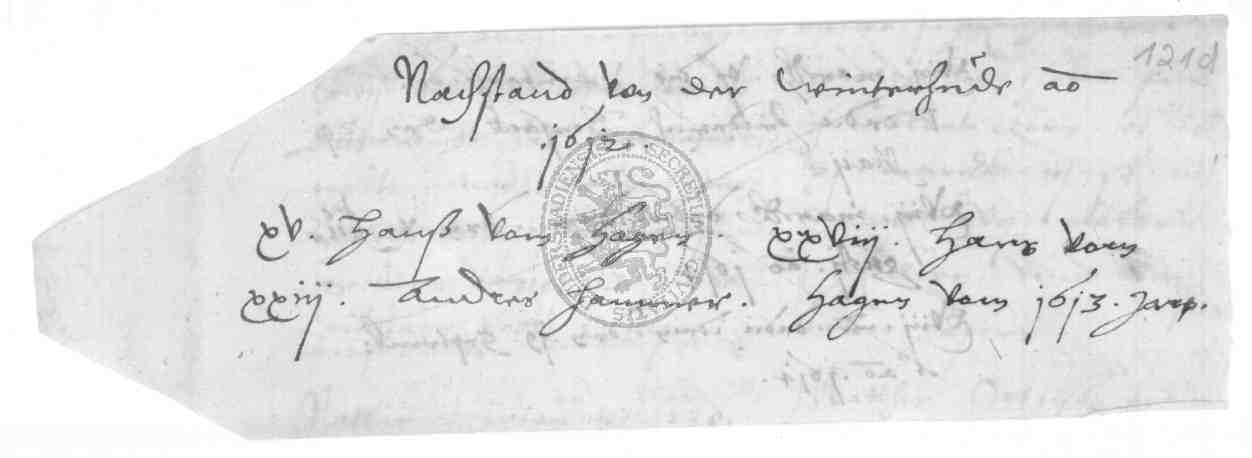 121d
Nachstand von der Winterhude ao
.1612.
xv. Hanß vom Hagen. xxviij. Hans vom
xxiij. Andres Hammer. Hagen vom 1613. Jare.
SECRETUM CIVITATIS